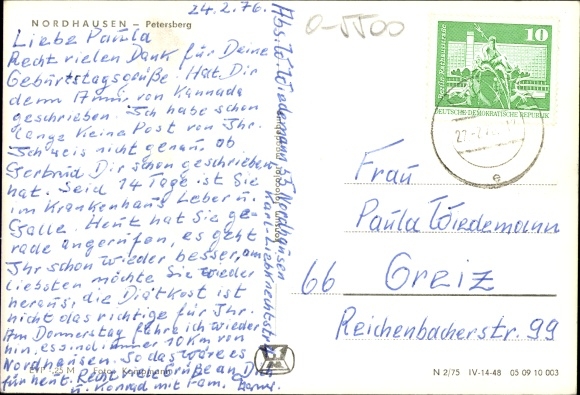 NORDHAUSEN – Petersberg
24.2.76.
Liebe Paula
Recht vielen Dank für Deine
Geburtstagsgrüße. Hat Dir
denn Anni von Kannada
geschrieben. Ich habe schon
lange keine Post von Ihr.
Ich weis nicht genau ob
Gertrud Dir schon geschrieben
hat. Seid 14 Tage ist Sie
im Krankenhaus Leber u.
Galle. Heut hat Sie ge-
rade angerufen, es geht
Ihr schon wieder besser, am
liebsten möchte Sie wieder
heraus, die Diätkost ist
nicht das richtige für Ihr.
Am Donnerstag fahre ich wieder
hin, es sind immer 10 Km von
Nordhausen. So das wäre es
für heut. Recht viele Grüße an Dich
u. Konrad mit Fam.
Abs. Lo Wiedemann 55 Nordhausen
Karl-Liebknechtstr.
0-5500
10
DEUTSCHE DEMOKRATISCHE REPUBLIK
Frau
Paula Wiedemann
66 Greiz
Reichenbacherstr. 99
N 2/75 IV-14-48 05 09 10 003